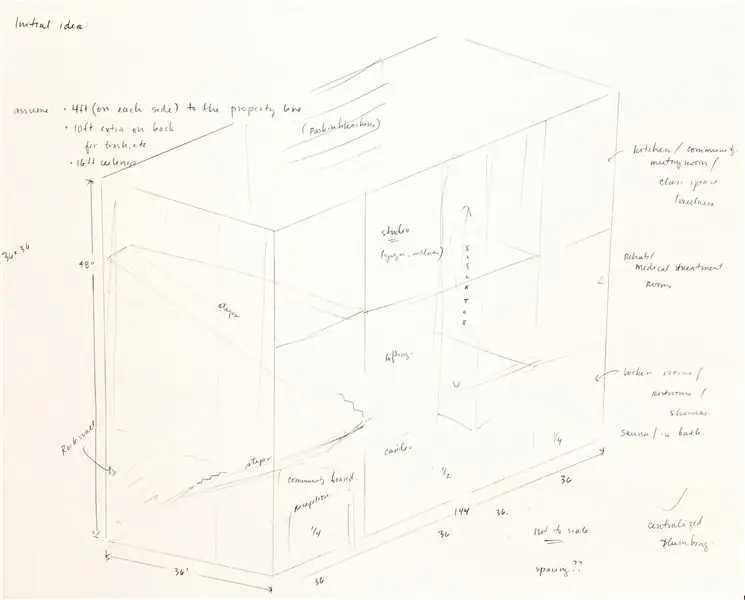 Initial idea:
assume • 4ft (on each side) to the property line
• 10ft extra on back
for trash, etc
• 16ft ceilings
kitchen / community
meeting room /
class space
36 x 36
48"
studio
ELEVATOR
Rehab/
medical treatment
rooms
steps
lifting
locker rooms /
restrooms /
showers
sauna / ice bath.
Rock wall
steps
cardio
1/4
community board
reception
1/2
36
1/4
144
36.
36
not to scale
spacing??
centralized
plumbing.
36'
36